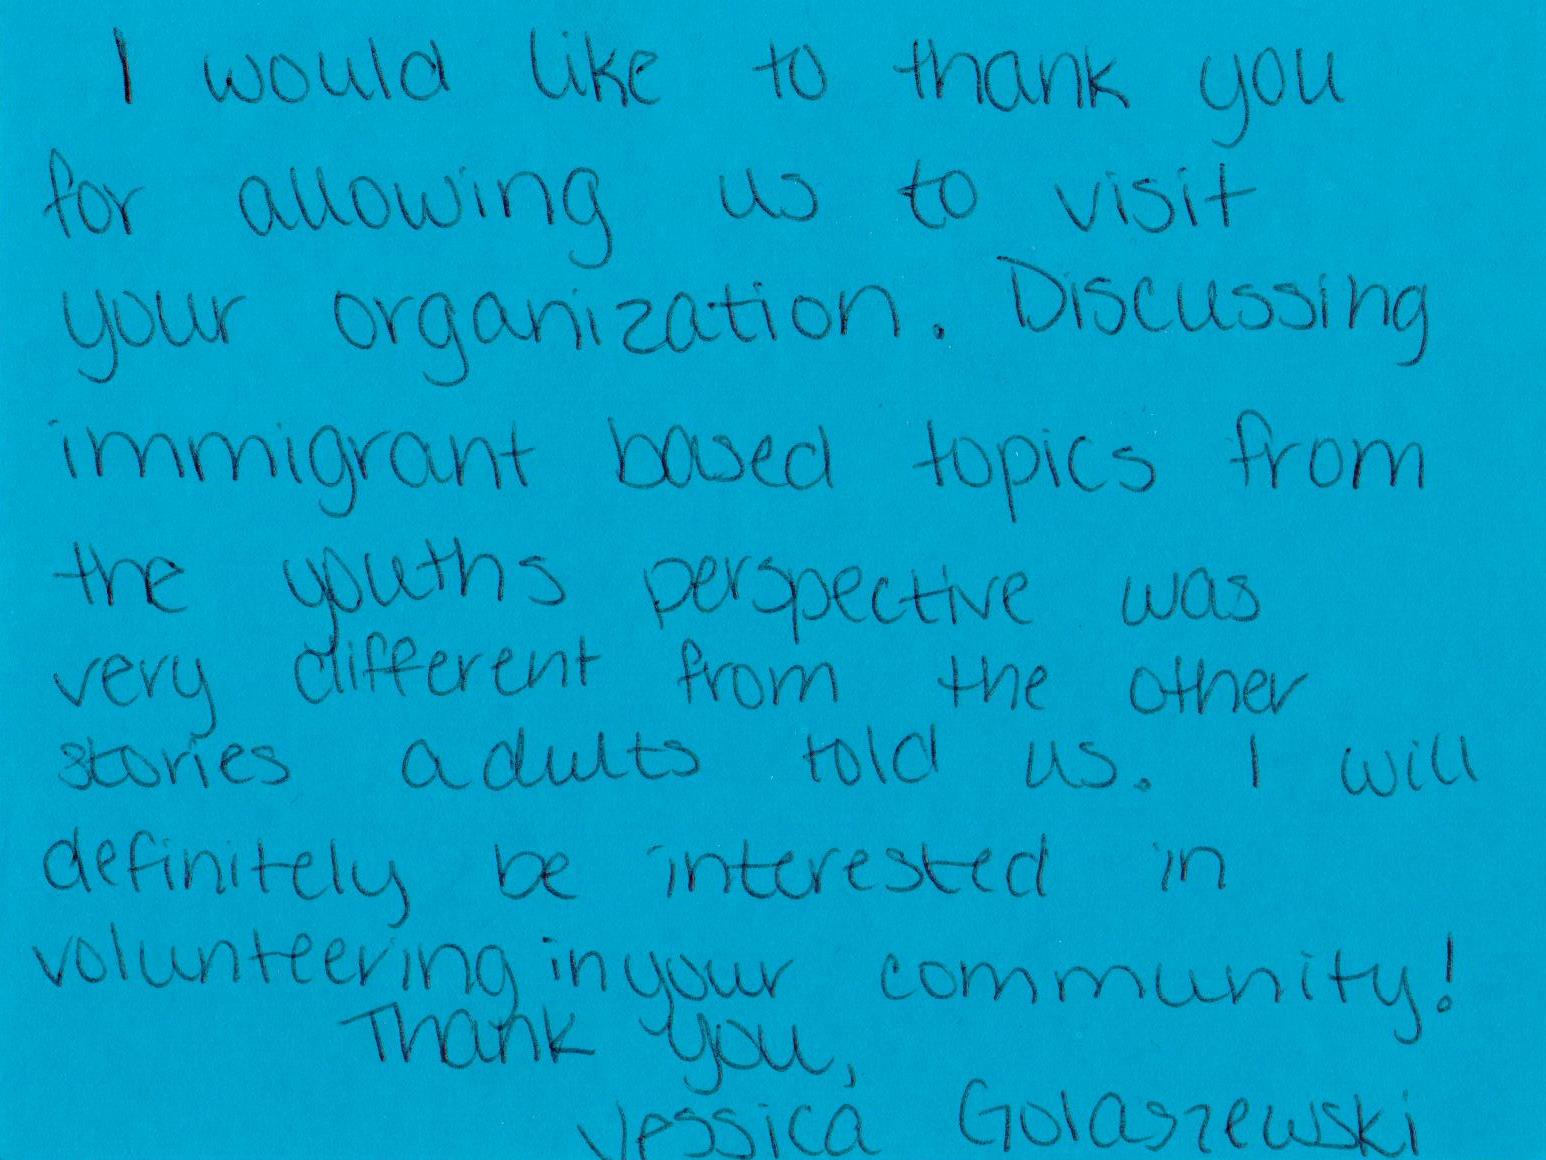 I would like to thank you
for allowing us to visit
your organization. Discussing
immigrant based topics from
the youths perspective was
very different from the other
stories adults told us. I will
definitely be interested in
volunteering in your community!
Thank you,
Jessica Golaszewski